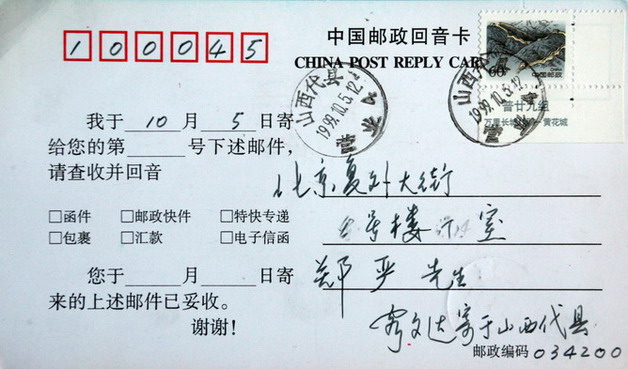 100045
中国邮政回音卡
CHINA POST REPLY CARD
60
中国邮政
山西代县
1999.10.5.12
山西代县
1999.10.5.12
普廿九组
万里长城 黄花城
我于10月5日寄
给您的第______号下述邮件，
请查收并回音
□函件 □邮政快件 □特快专递
□包裹 □汇款 □电子信函
您于______月______日寄
来的上述邮件已妥收。
谢谢！
北京复外大街
号楼 室
郑严 先生
寄于山西代县
邮政编码 034200